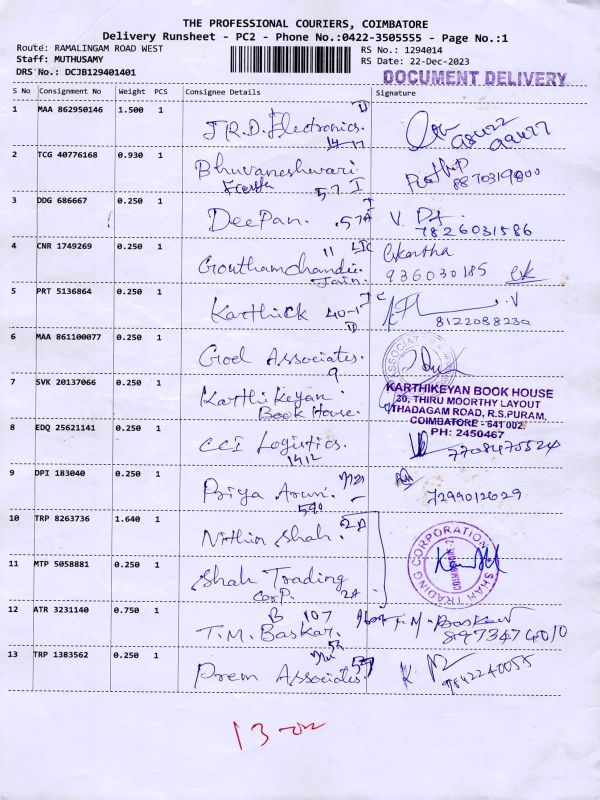 THE PROFESSIONAL COURIERS, COIMBATORE
Delivery Runsheet - PC2 - Phone No.:0422-3505555 - Page No.:1
Route: RAMALINGAM ROAD WEST
RS No.: 1294014
Staff: MUTHUSAMY
RS Date: 22-Dec-2023
DRS No.: DCJB129401401
DOCUMENT DELIVERY
S No Consignment No Weight PCS Consignee Details Signature
1 MAA 862950146 1.500 1 J.R.D. Electronics.
2 TCG 40776168 0.930 1 Bhuvaneshwari
57 I 8870319800
3 DDG 686667 0.250 1 DeePan. .57A
7826031586
4 CNR 1749269 0.250 1 Gouthamchandu
Jain.
936030185
5 PRT 5136864 0.250 1 Karthick 40-1
8122088230
6 MAA 861100077 0.250 1 Goel Associates.
9
7 SVK 20137066 0.250 1 Karthikeyan
Book House.
KARTHIKEYAN BOOK HOUSE
20, THIRU MOORTHY LAYOUT
THADAGAM ROAD, R.S.PURAM,
COIMBATORE - 641 002.
PH: 2450467
8 EDQ 25621141 0.250 1 CCI Logistics.
1412
7708470524
9 DPI 183040 0.250 1 Priya Arun.
590
7299012629
10 TRP 8263736 1.640 1 Nithin Shah. 2A
11 MTP 5058881 0.250 1 Shah Trading
Corp. 2A
SHAH TRADING CORPORATION
12 ATR 3231140 0.750 1 B 107
T.M. Baskar. T.M. Baskar
8973474010
13 TRP 1383562 0.250 1 Prem Associates.
9842240055
13